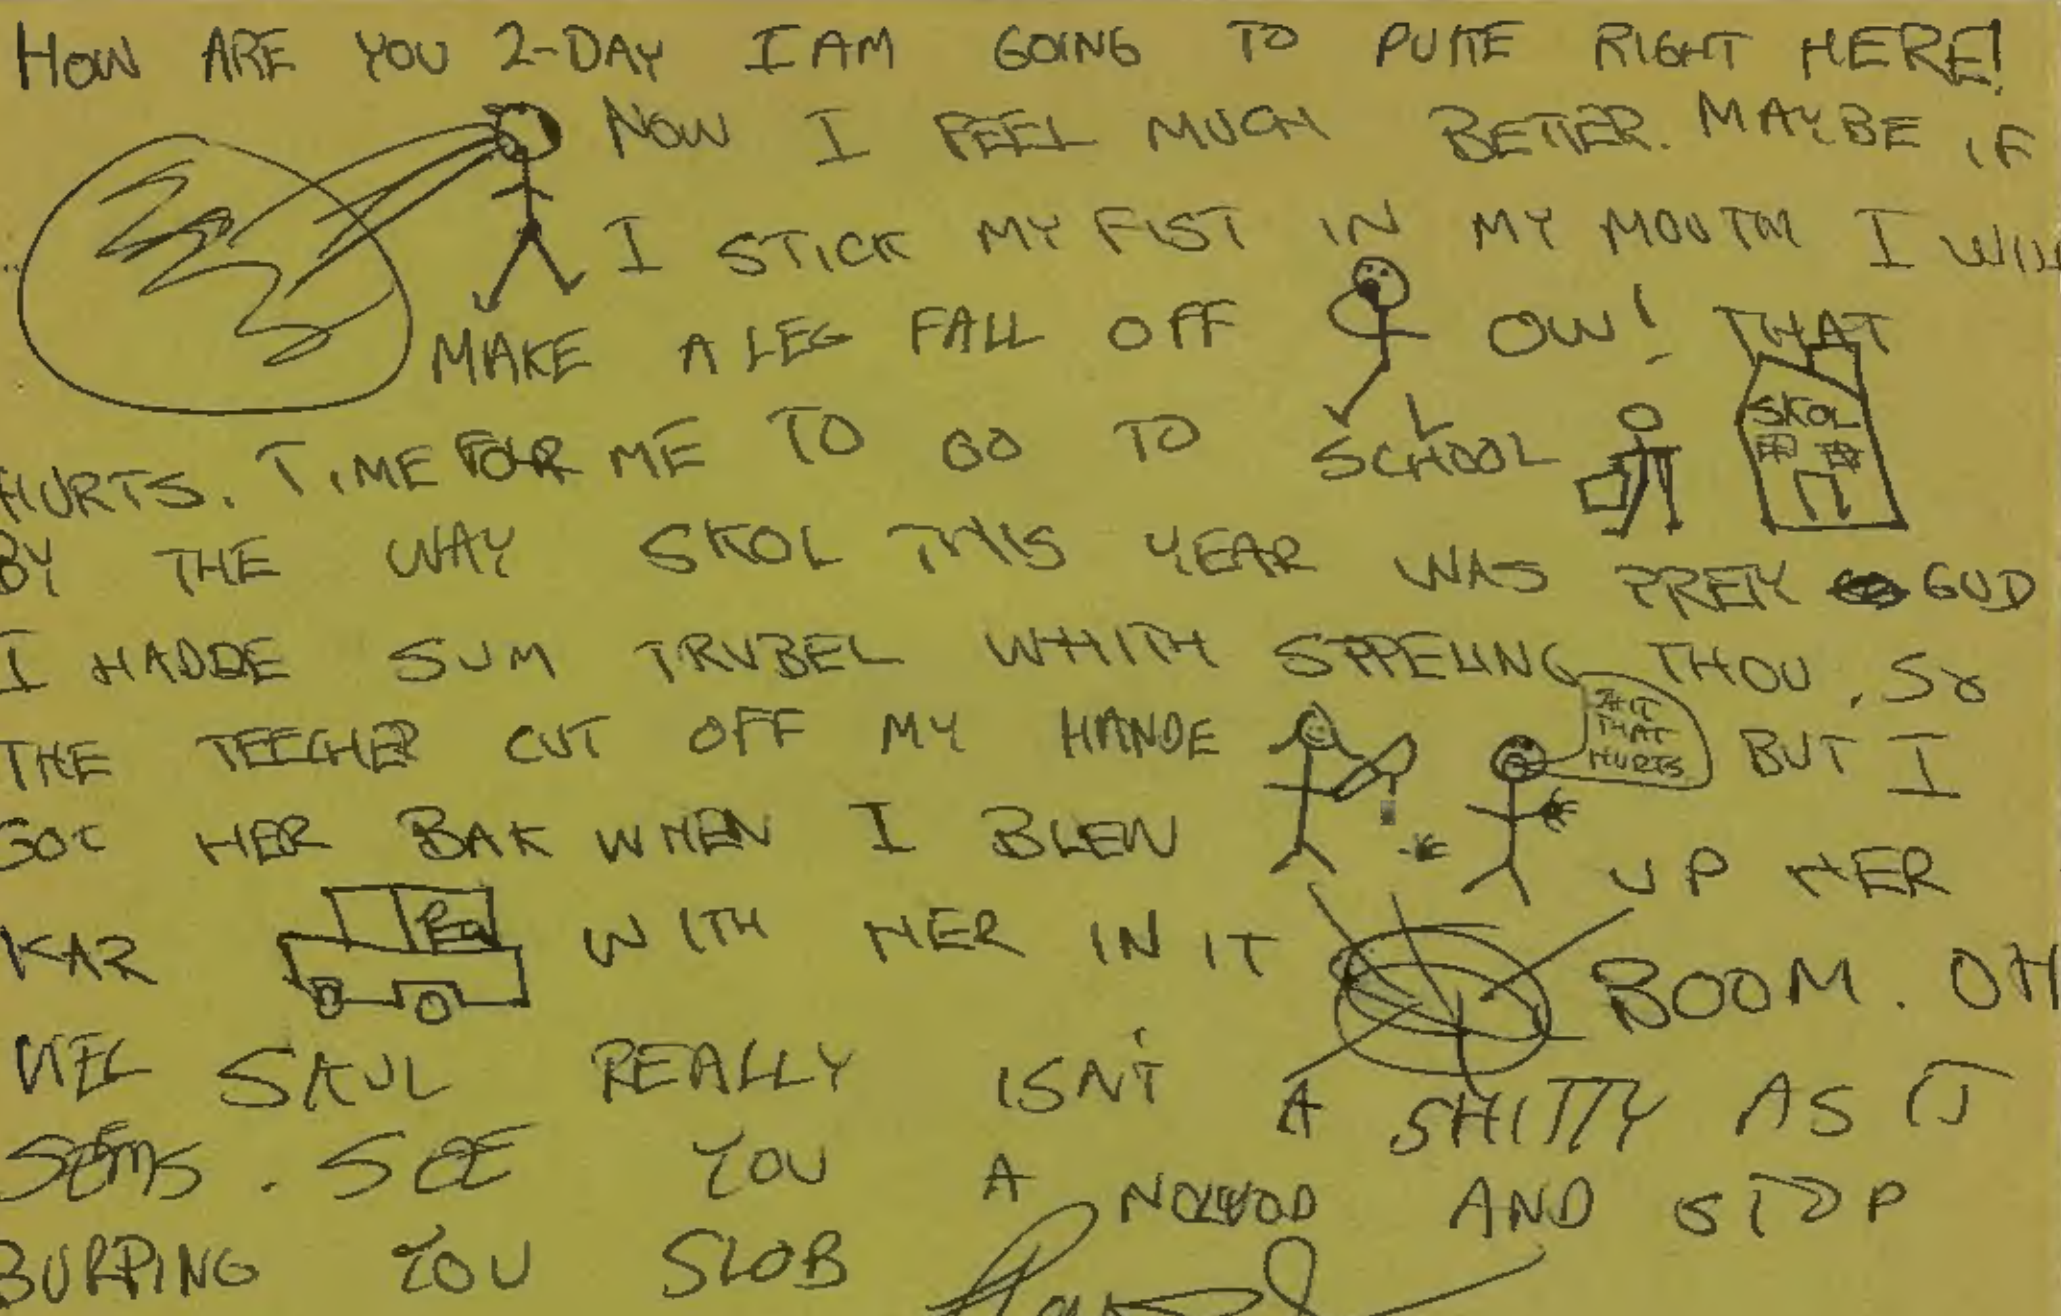 HOW ARE YOU 2-DAY I AM GOING TO PUKE RIGHT HERE!
NOW I FEEL MUCH BETTER. MAYBE IF
I STICK MY FIST IN MY MOUTH I WILL
MAKE A LEG FALL OFF OW! THAT
SKOL
HURTS. TIME FOUR ME TO GO TO SCHOOL
BY THE WAY SKOL THIS YEAR WAS PRETY GUD
I HADDE SUM TRUBEL WHITH SPPELING THOU. SO
SHIT
THAT
HURTS
THE TEECHER CUT OFF MY HANDE BUT I
GOT HER BAK WHEN I BLEW UP HER
KAR WITH HER IN IT BOOM. OH
WEL SKUL REALLY ISN'T A SHITTY AS IT
SEEMS. SEE YOU A AND STOP
BURPING YOU SLOB